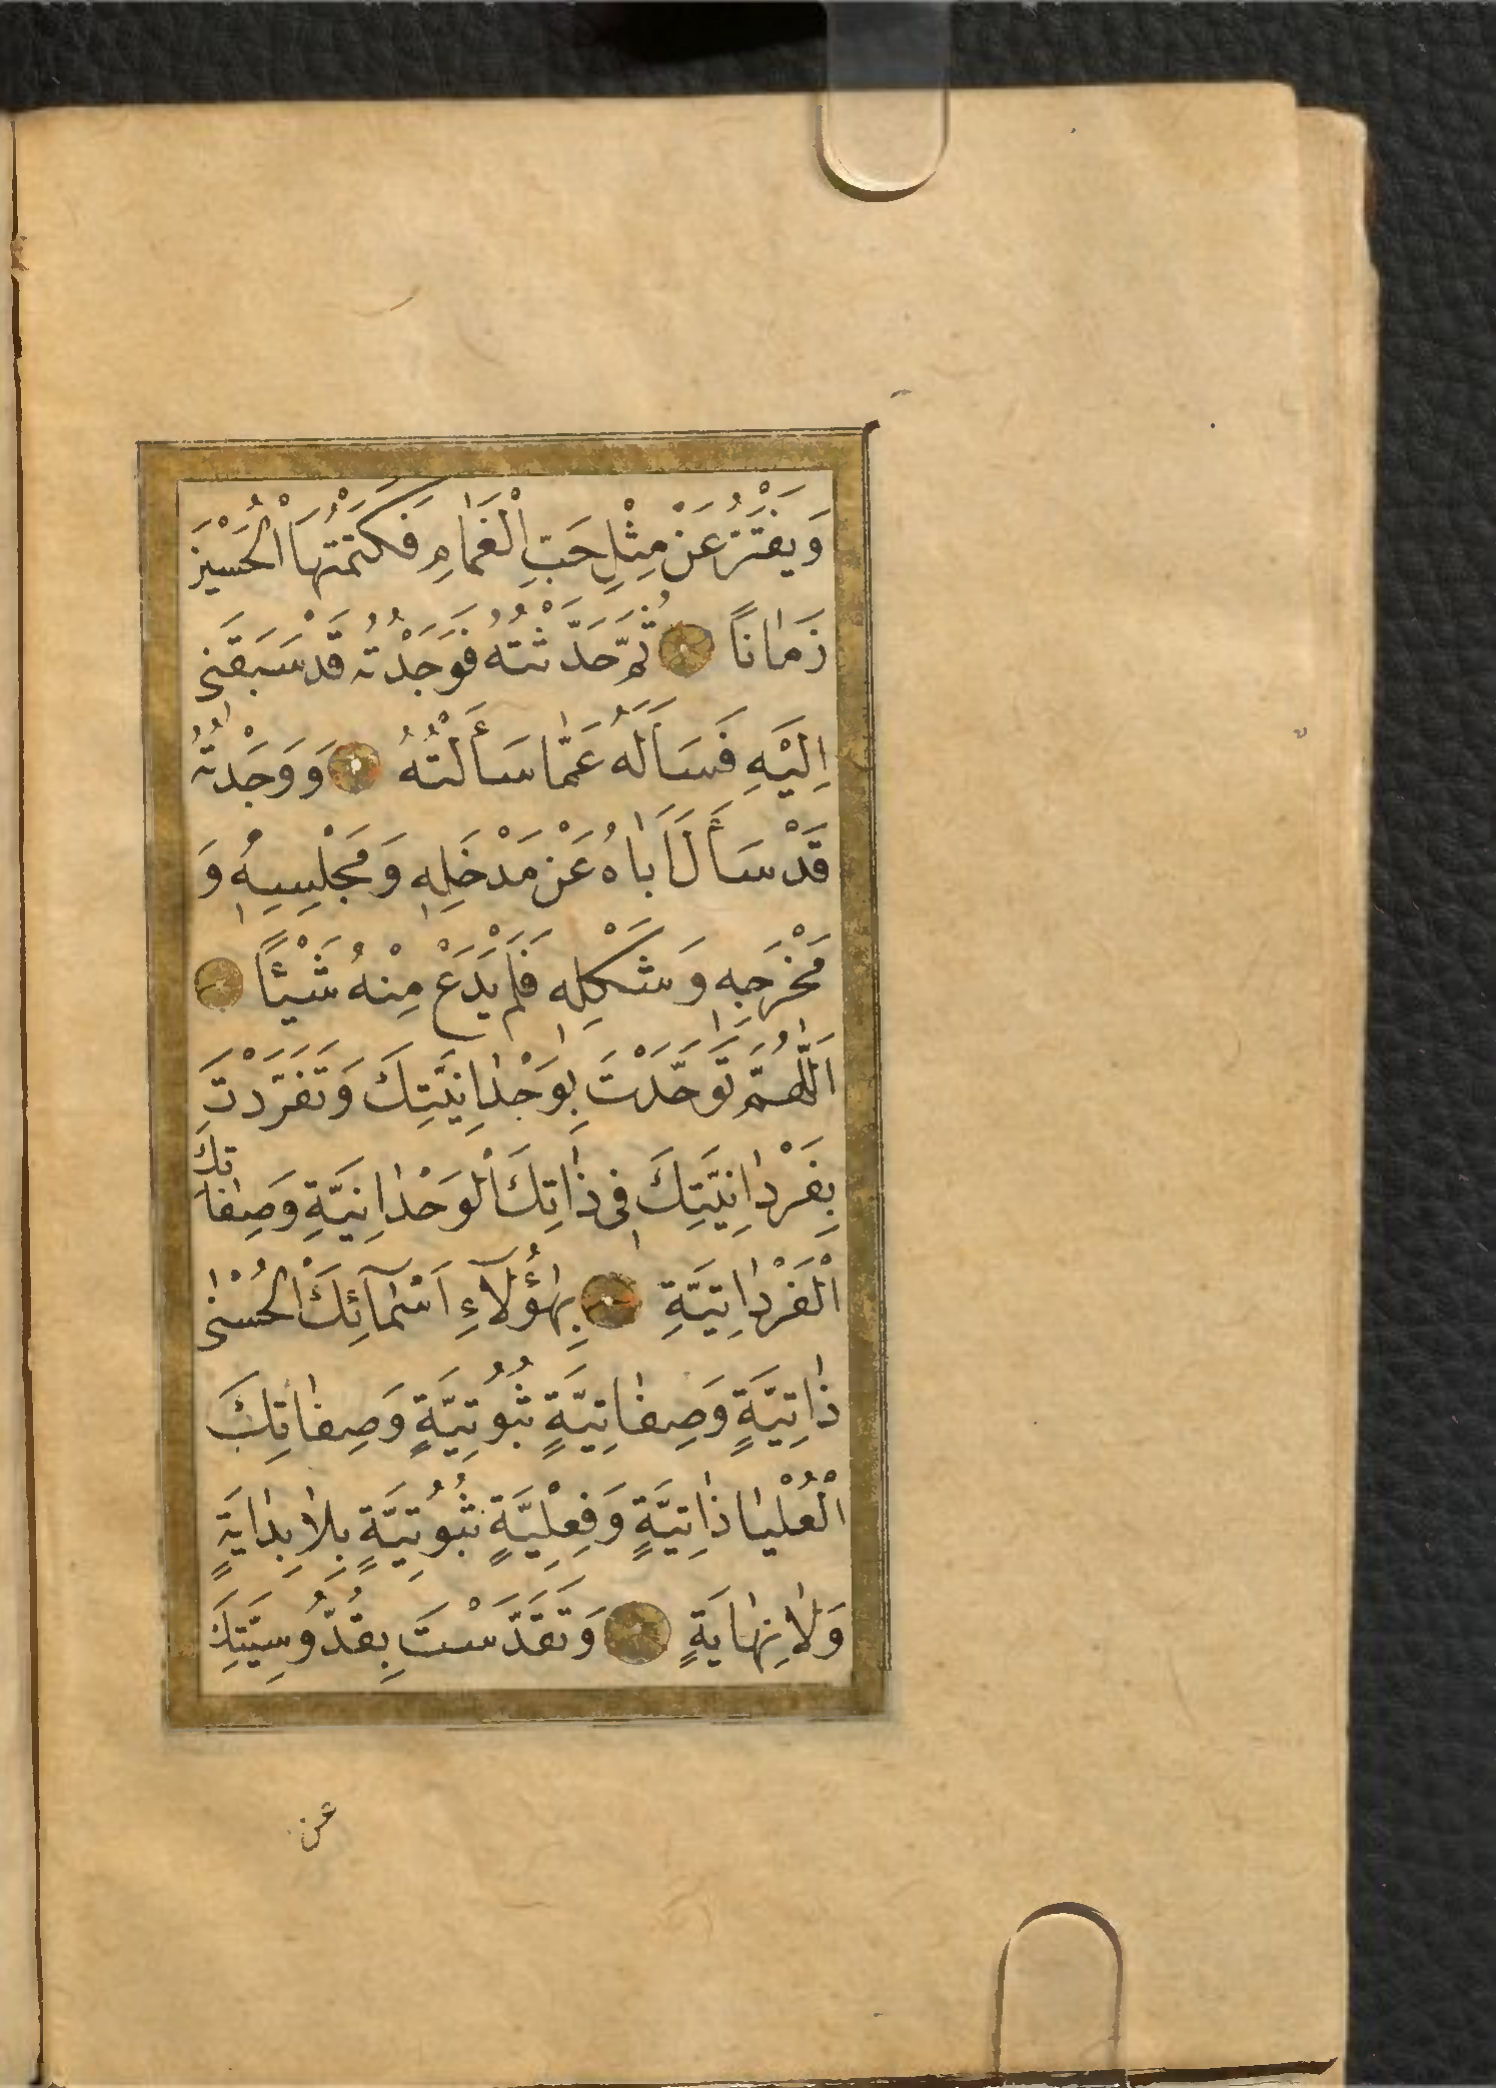 وَيَفْتَرُّ عَنْ مِثْلِ حَبِّ الْغَمَامِ فَكَتَمْتُهَا الْحُسَيْنَ
زَمَانًا ثُمَّ حَدَّثْتُهُ فَوَجَدْتُهُ قَدْ سَبَقَنِى
اِلَيْهِ فَسَأَلَهُ عَمَّا سَأَلْتُهُ وَوَجَدْتُهُ
قَدْ سَأَلَ اَبَاهُ عَنْ مَدْخَلِهِ وَمَجْلِسِهِ وَ
مَخْرَجِهِ وَشَكْلِهِ فَلَمْ يَدَعْ مِنْهُ شَيْئًا
اَللّٰهُمَّ تَوَحَّدْتَ بِوَحْدَانِيَّتِكَ وَتَفَرَّدْتَ
بِفَرْدَانِيَّتِكَ فِى ذَاتِكَ الْوَحْدَانِيَّةِ وَصِفَاتِكَ
الْفَرْدَانِيَّةِ بِهٰؤُلَآءِ اَسْمَآئِكَ الْحُسْنٰى
ذَاتِيَّةٍ وَصِفَاتِيَّةٍ ثُبُوتِيَّةٍ وَصِفَاتِكَ
الْعُلْيَا ذَاتِيَّةٍ وَفِعْلِيَّةٍ ثُبُوتِيَّةٍ بِلَا بِدَايَةٍ
وَلَا نِهَايَةٍ وَتَقَدَّسْتَ بِقُدُّوسِيَّتِكَ
عن